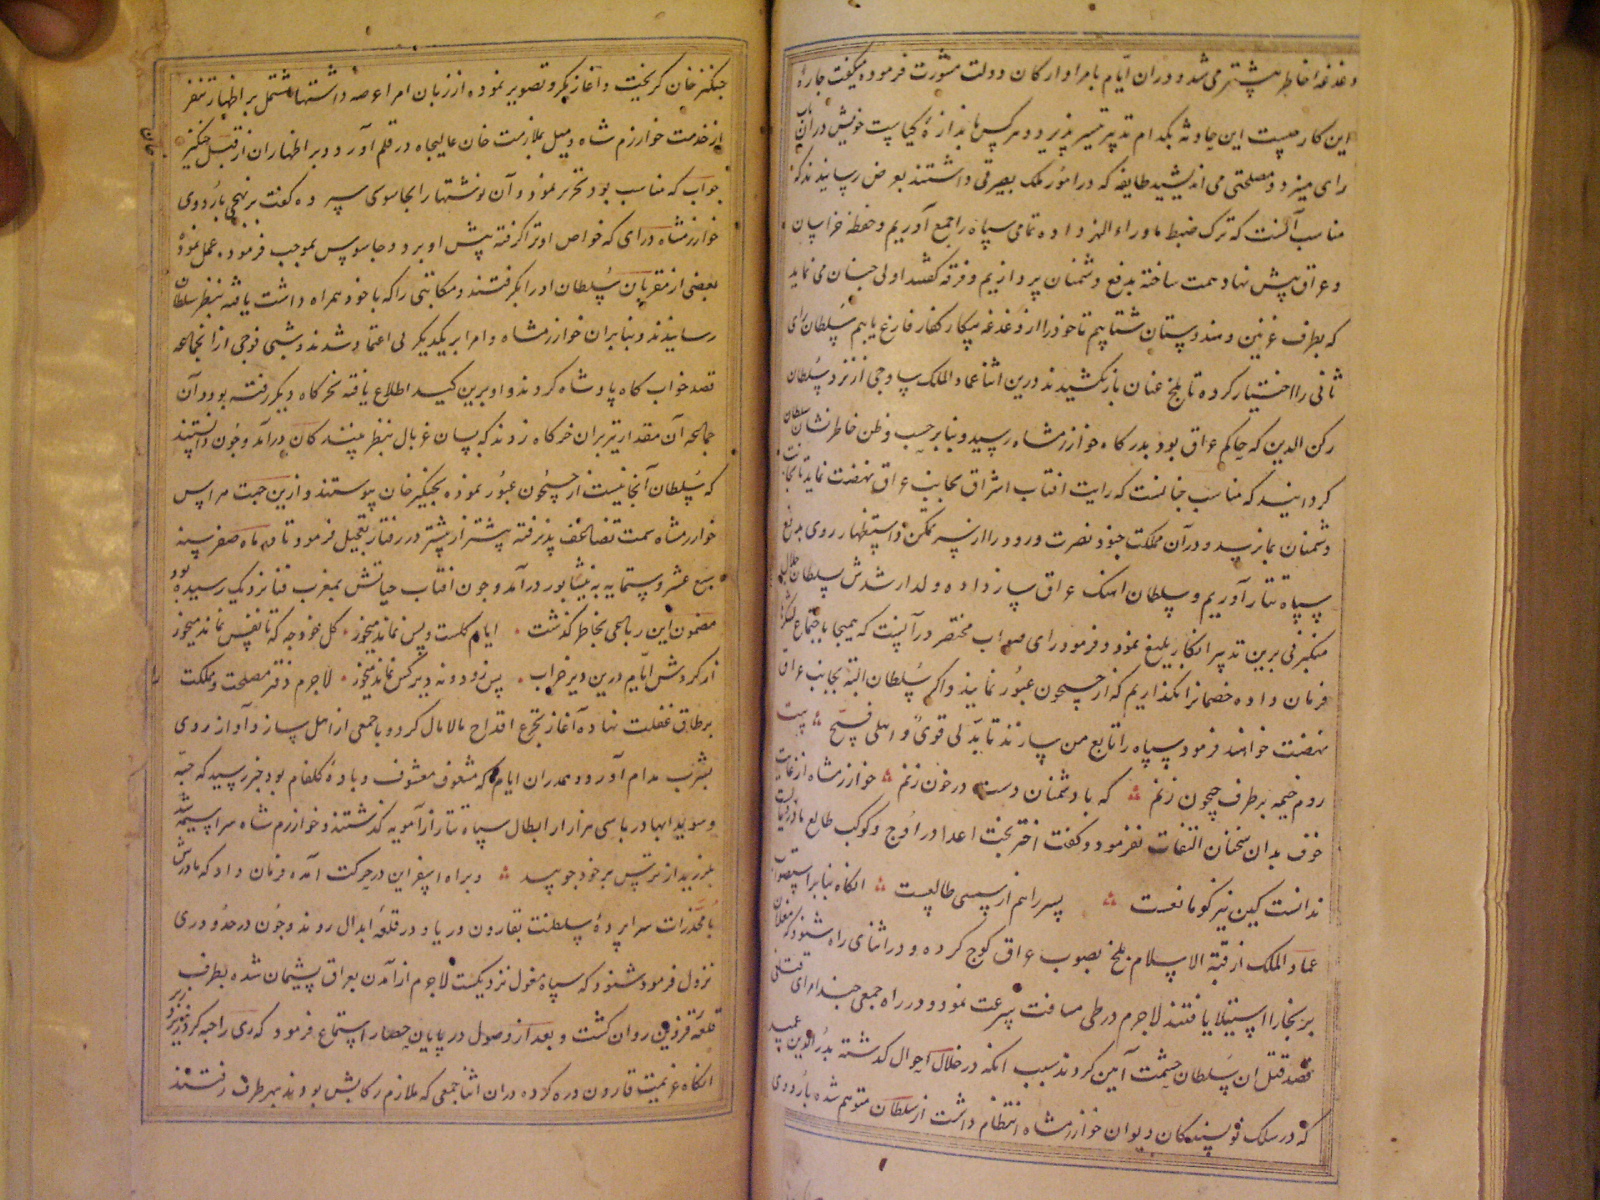 دغدغهٔ خاطر بیشتر می‌شد و دران ایام با امرا و ارکان دولت مشورت فرموده میگفت چارهٔ
این کار چیست این حادثه بکدام تدبیر تیسیر پذیرد و هرکس باندازهٔ کیاست خویش دران باب
رای میزد و مصلحتی می اندیشید طایفه که در امور ملک بصیرتی داشتند بعرض رسانیدند که
مناسب آنست که ترک ضبط ماوراء النهر داده تمامی سپاه را جمع آوریم و حفظ خراسان
و عراق پیش نهاد همت ساخته بدفع دشمنان پردازیم و فرقه گفتند اولی چنان می نماید
که بطرف غزنین و هندوستان شتابیم تا خود را از دغدغه پیکار کفار فارغ یابیم سلطان رای
ثانی را اختیار کرده تا بلخ عنان باز نکشید و درین اثنا عماد الملک ساوجی از نزد سلطان
رکن الدین که حاکم عراق بود بدرگاه خوارزمشاه رسید و بنابر حب وطن خاطر نشان سلطان
گردانید که مناسب چنانست که رایت افتاب اشراق بجانب عراق نهضت نماید تا بجانب
دشمنان بما نرسد و دران مملکت جنود نصرت ورود را از سر تمکن و استظهار روی بدفع
سپاه تتار آوریم و سلطان اهنگ عراق ساز داده ولد ارشدش سلطان جلال
منکبرنی برین تدبیر انکار بلیغ نمود و فرمود رای صواب منحصر در آنست که همینجا باجتماع لشکر
فرمان داده خصمانرا نگذاریم که از جیحون عبور نمایند و اگر سلطان البته بجانب عراق
نهضت خواهند فرمود سپاه را تابع من سازند تا بدلی قوی و املی فسیح بیت
روم خیمه بر طرف جیحون زنم که با دشمنان دست در خون زنم خوارزمشاه از غایت
خوف بدان سخنان التفات نفرمود و گفت اختر بخت اعدا در اوج و کوکب طالع ما در
ندانست کین نیز گو مانعست پسر را هم از سستی طالعست انگاه بنابر استصواب
عماد الملک از قبة الاسلام بلخ بصوب عراق کوچ کرده و در اثنای راه شنود که مغلان
بر بخارا استیلا یافتند لاجرم در طی مسافت سرعت نمود و در راه جمعی
قصد قتل ان سلطان حشمت آیین کردند بسبب انکه در خلال احوال گذشته بدر الدین عمید
که در سلک نویسندگان دیوان خوارزمشاه انتظام داشت از سلطان متوهم شده باردوی
چنگیز خان گریخت و آغاز مکر و تصویر نموده از زبان امرا عرضه داشتها مشتمل بر اظهار تنفر
از خدمت خوارزم شاه و میل بملازمت خان عالیجاه در قلم آورد و بر اظهار ان از قبل چنگیز
جواب که مناسب بود تحریر نمود و آن نوشتها را بجاسوسی سپرده گفت بر نهجی باردوی
خوارزمشاه درای که خواص او ترا گرفته پیش او برد و جاسوس بموجب فرموده عمل نمود
بعضی از مقربان سلطان او را بگرفتند و مکاتبتی را که با خود همراه داشت یافته بنظر سلطان
رسانیدند و بنابران خوارزمشاه و امرا بر یکدیگر بی اعتماد شدند و شبی فوجی از انجماعه
قصد خواب گاه پادشاه کردند و او برین کید اطلاع یافته بخرگاه دیگر رفته بود و آن
جماعه آن مقدار تیر بران خرگاه زدند که بسان غربال بنظر بینندگان درآمد و چون دانستند
که سلطان آنجا نیست از جیحون عبور نموده بچنگیز خان پیوستند و ازین جهت هراس
خوارزمشاه سمت تضاعف پذیرفته پیشتر از پیشتر در رفتار تعجیل فرمود تا در ماه صفر سنه
سبع عشر و ستمایه به نیشابور درآمد و چون افتاب حیاتش بمغرب فنا نزدیک رسیده بود
مضمون این رباعی بخاطر گذشت ایام گلست و پس نماند میخور گل غنچه که تا نفس نماند میخور
از گردش ایام درین دیر خراب بس زود نه دیر کس نماند میخور لاجرم دفتر مصلحت و مملکت
بر طاق غفلت نهاده آغاز تجرع اقداح مالامال کرد و با جمعی از اهل ساز و آواز روی
بشرب مدام آورد و دران ایام که مشعوف معشوف و بادهٔ گلفام بود خبر رسید که جبه
و سوبدای بهادر با سی هزار از ابطال سپاه تتار از آمویه گذشتند و خوارزم شاه سراسیمه شد
بلرزید از ترس بر خود چو بید و براه اسفراین در حرکت آمده فرمان داد که مادرش
با مخدرات سراپردهٔ سلطنت بقارون در یا در قلعهٔ ابدال روند و چون در حدود ری
نزول فرمود شنود که سپاه مغول نزدیکست لاجرم از آمدن بعراق پشیمان شده بطرف
قلعه قزوین روان گشت و بعد از وصول در پایان حصار استماع فرمود که ری را
انگاه عزیمت قارون دره کرده دران اثنا جمعی که ملازم رکابش بودند بهر طرف رفتند